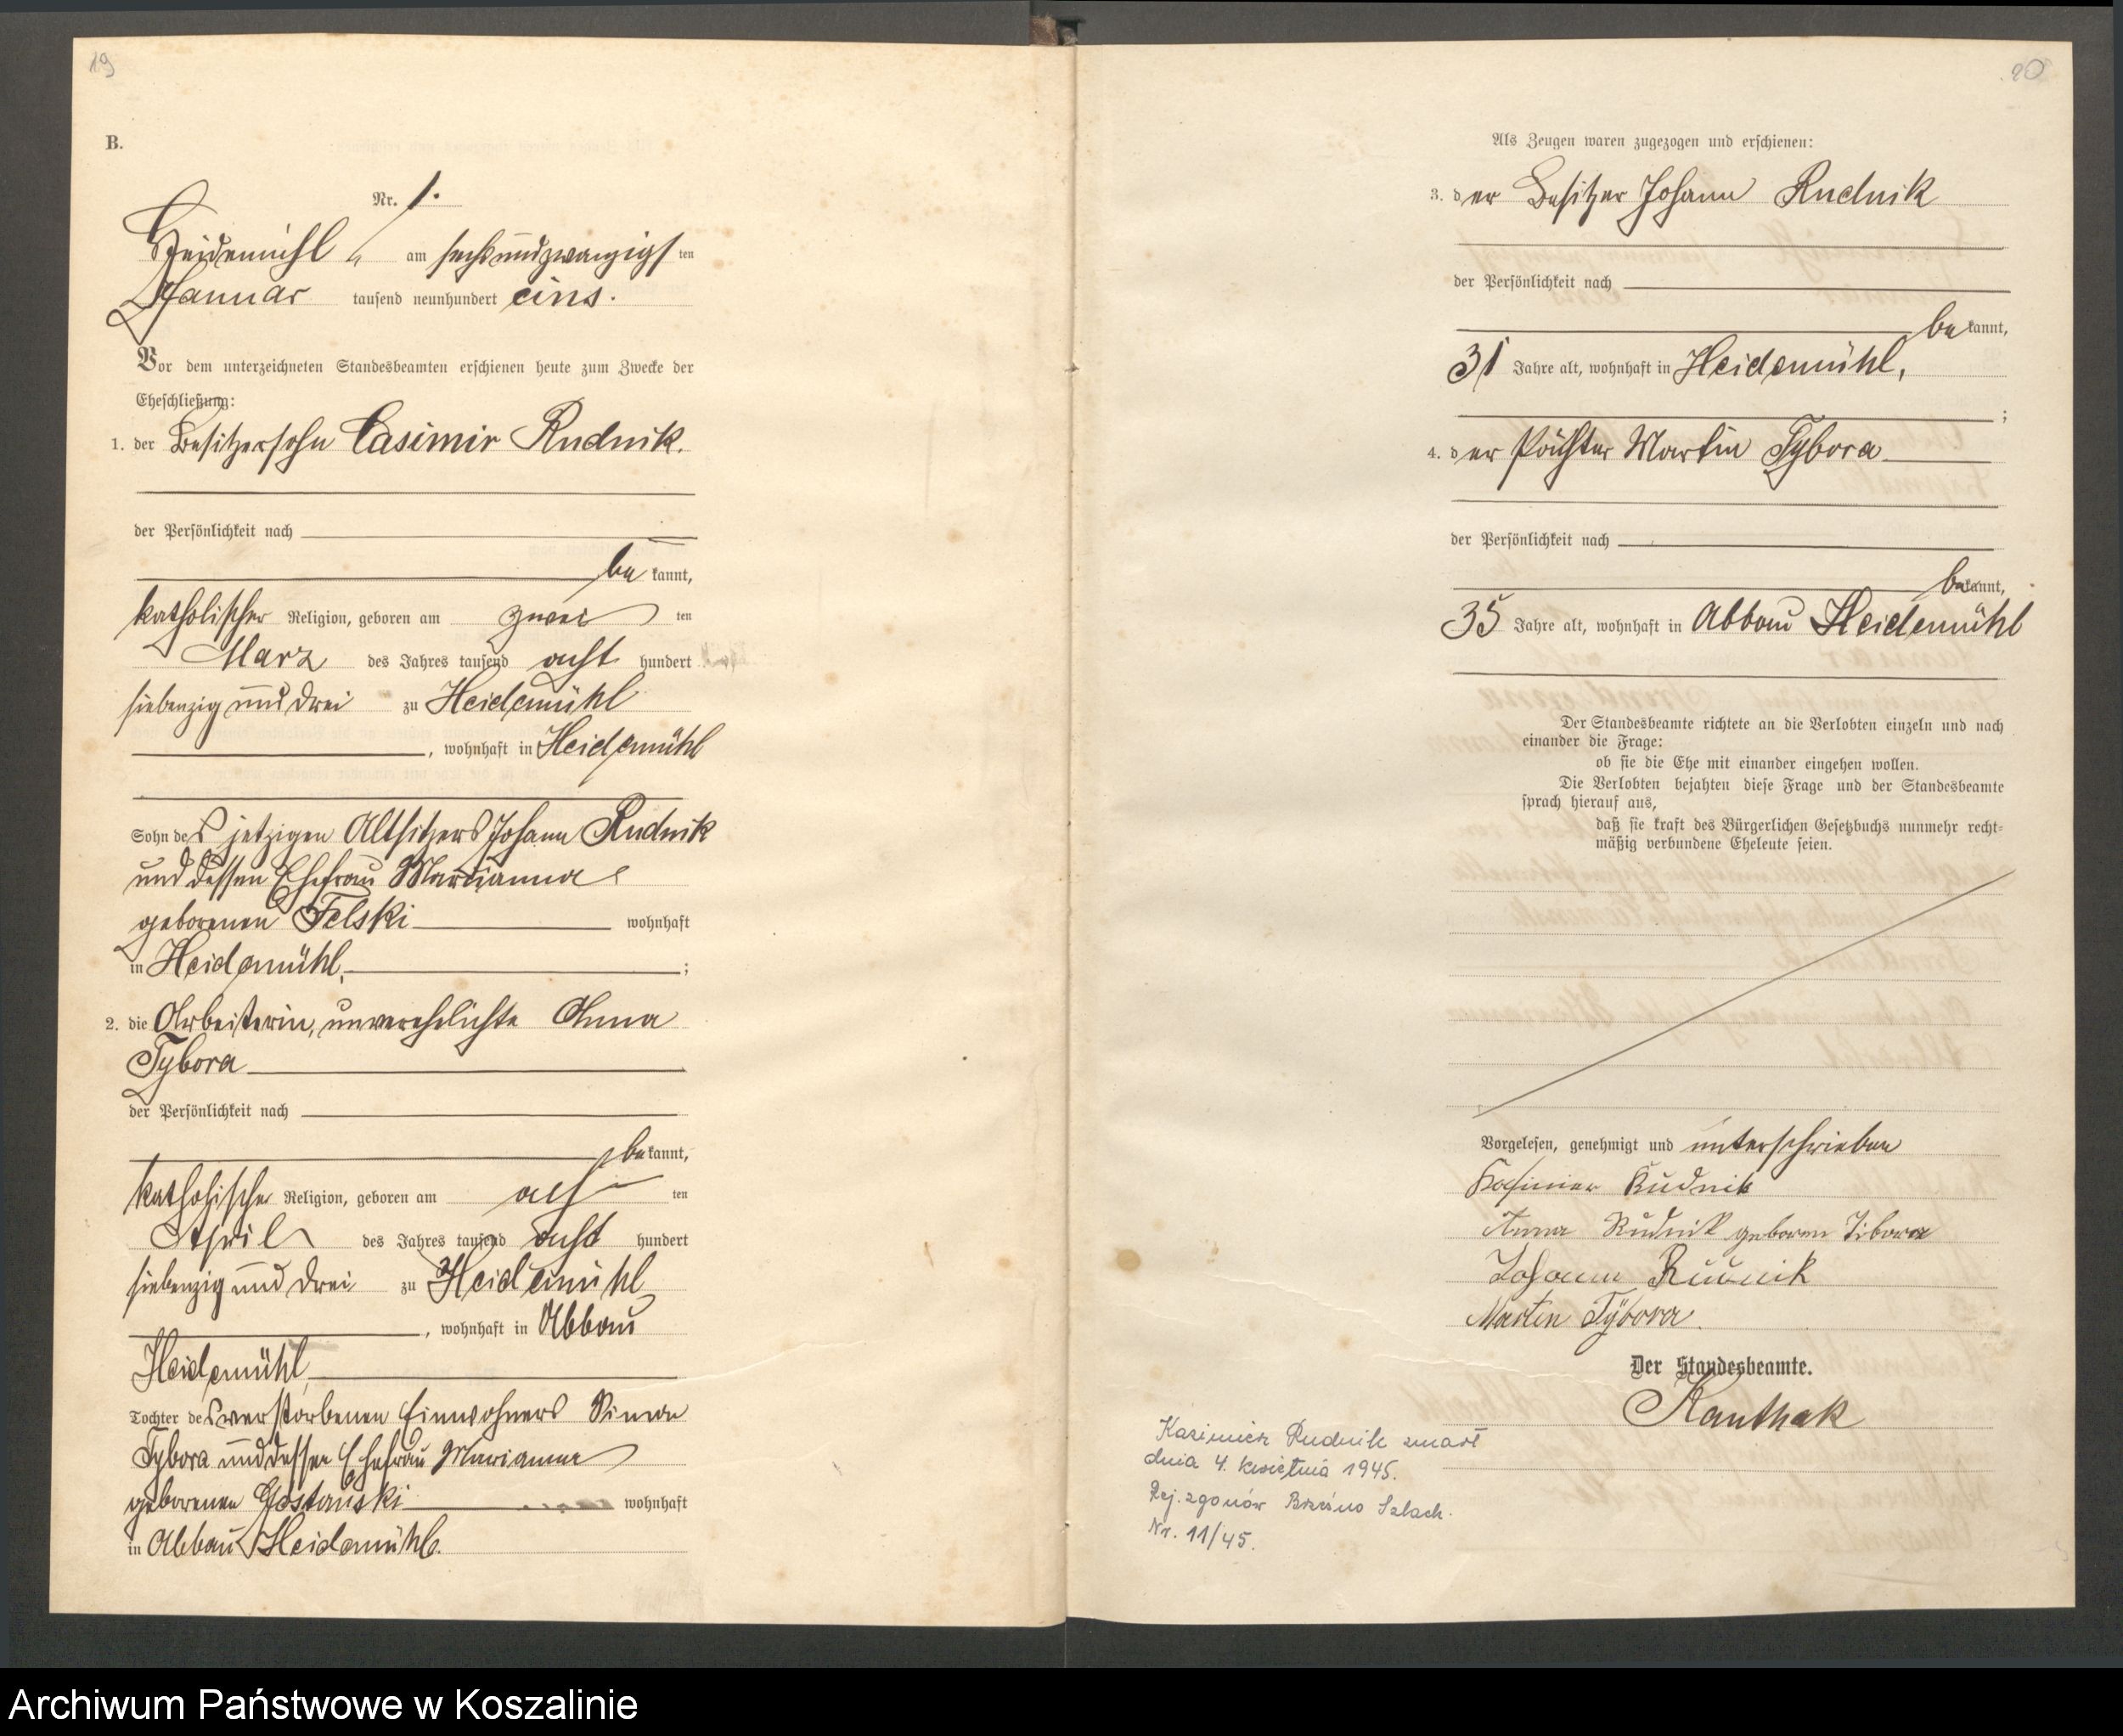 19
B.
Nr. 1.
Heidemühl, am sechsundzwanzigsten
Januar tausend neunhundert eins.
Vor dem unterzeichneten Standesbeamten erschienen heute zum Zwecke der
Eheschließung:
1. der Besitzersohn Casimir Rudnik.
der Persönlichkeit nach
bekannt,
katholischer Religion, geboren am zweiten
März des Jahres tausend acht hundert
siebenzig und drei zu Heidemühl
, wohnhaft in Heidemühl
Sohn des jetzigen Altsitzers Johann Rudnik
und dessen Ehefrau Marianna
geborenen Felski wohnhaft
in Heidemühl, ;
2. die Arbeiterin, unverehelichte Anna
Tybora
der Persönlichkeit nach
bekannt,
katholische Religion, geboren am achten
April des Jahres tausend acht hundert
siebenzig und drei zu Heidemühl
, wohnhaft in Abbau
Heidemühl,
Tochter des verstorbenen Einwohners Simon
Tybora und dessen Ehefrau Marianna
geborenen wohnhaft
in Abbau Heidemühl.
20
Als Zeugen waren zugezogen und erschienen:
3. der Besitzer Johann Rudnik
der Persönlichkeit nach
bekannt,
31 Jahre alt, wohnhaft in Heidemühl,
;
4. der Pächter Martin Tybora
der Persönlichkeit nach
bekannt,
35 Jahre alt, wohnhaft in Abbau Heidemühl
Der Standesbeamte richtete an die Verlobten einzeln und nach
einander die Frage:
ob sie die Ehe mit einander eingehen wollen.
Die Verlobten bejahten diese Frage und der Standesbeamte
sprach hierauf aus,
daß sie kraft des Bürgerlichen Gesetzbuchs nunmehr recht-
mäßig verbundene Eheleute seien.
Vorgelesen, genehmigt und unterschrieben
Kasimier Rudnik
Anna Rudnik geboren Tibora
Johann Rudnik
Martin Tybora.
Der Standesbeamte.
Kanthak
Kazimierz Rudnik zmarł
dnia 4. kwietnia 1945.
Rej. zgonów Brzeźno Szlach.
Nr. 11/45.
Archiwum Państwowe w Koszalinie